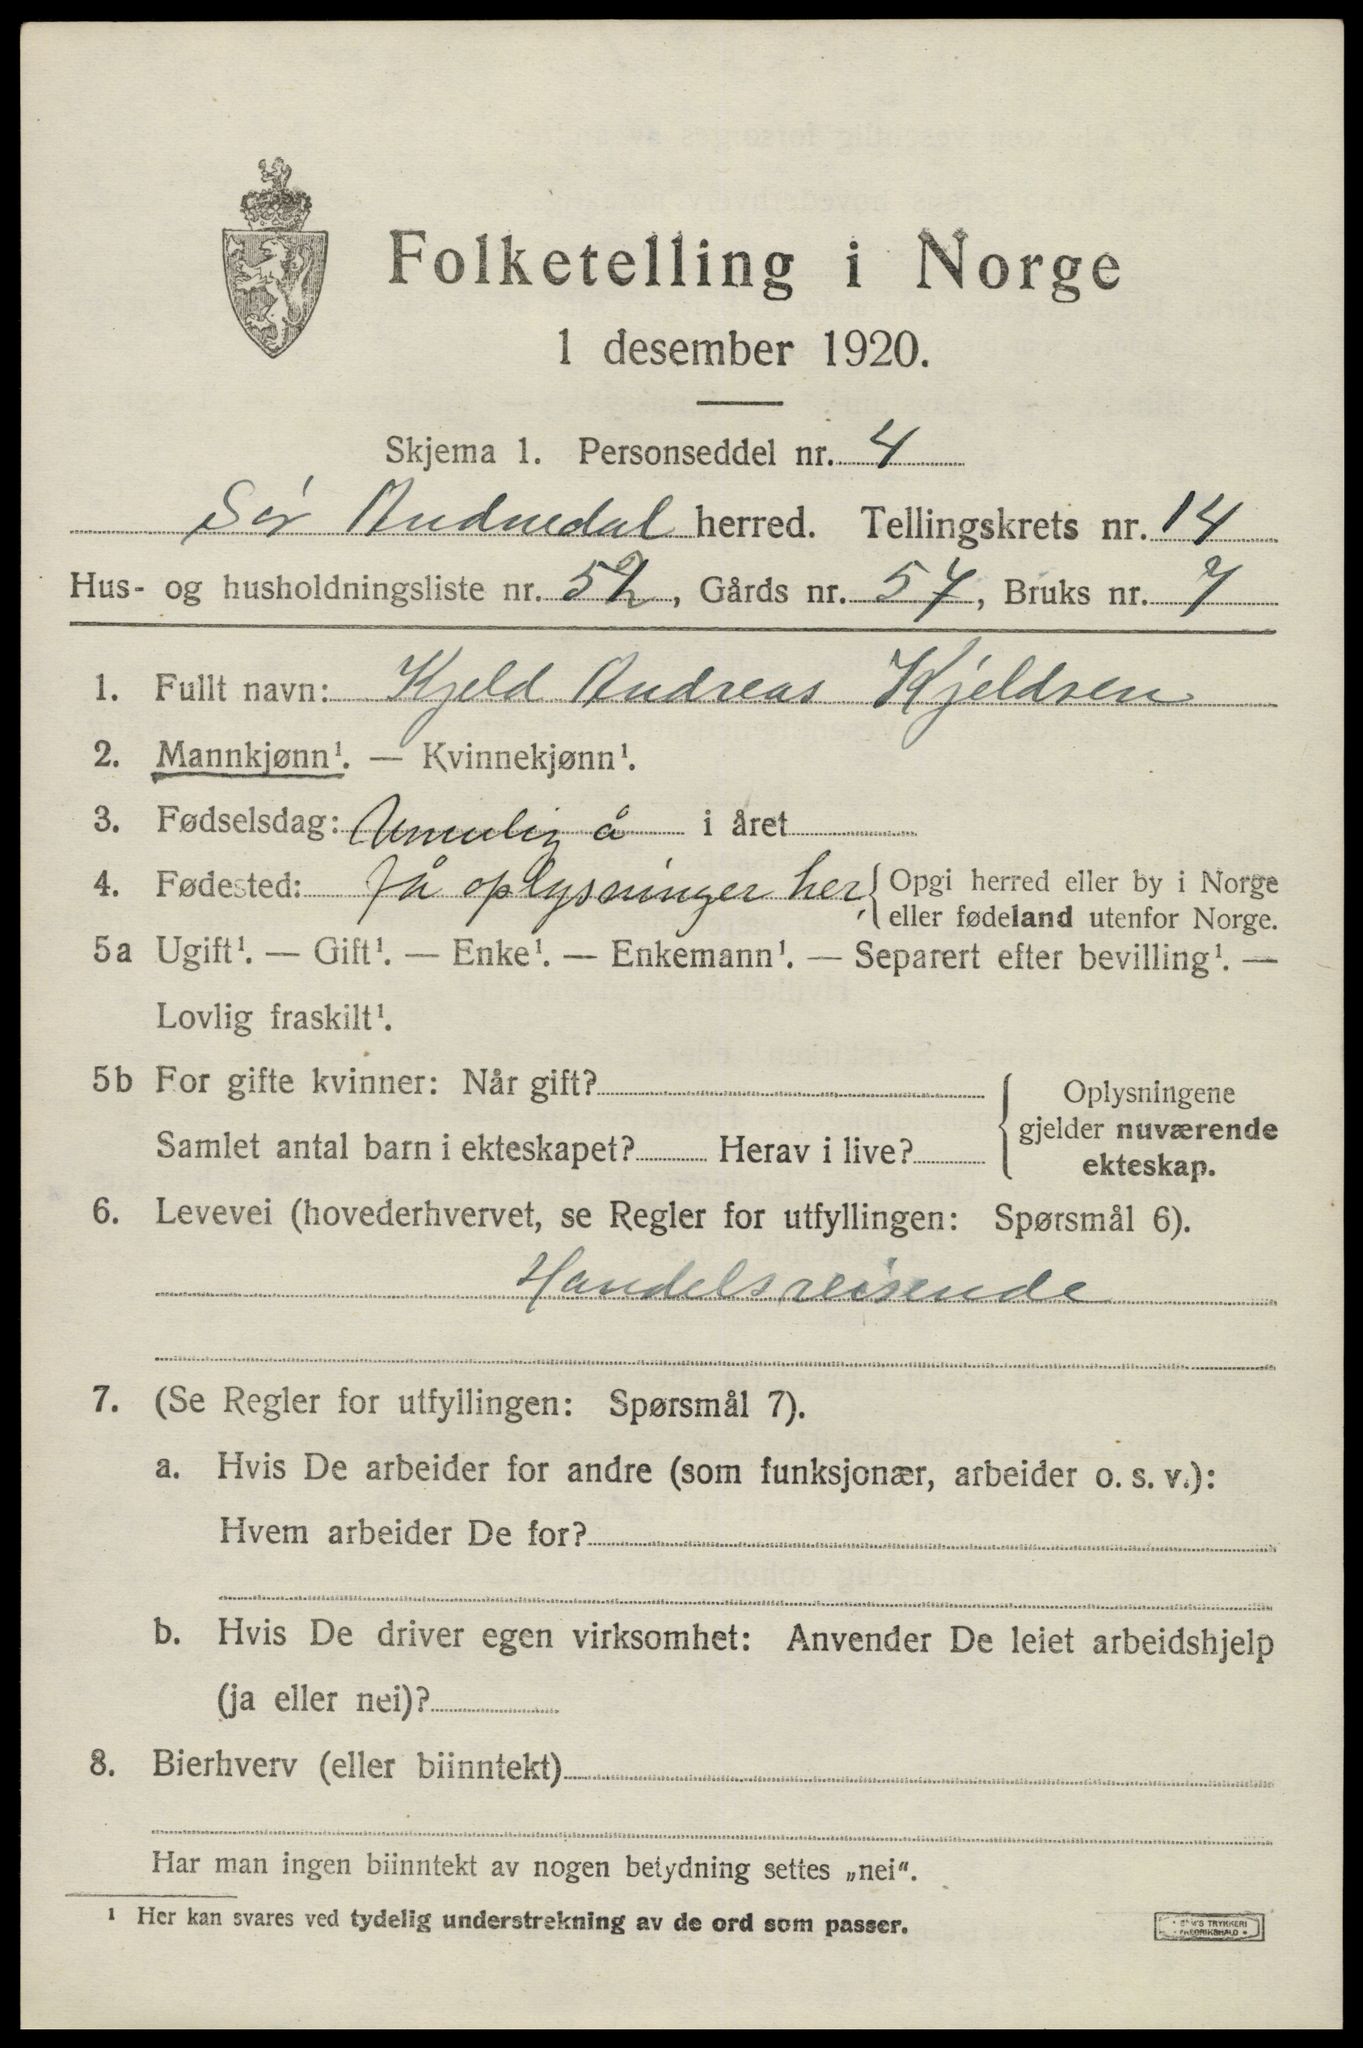 Folketelling i Norge
1 desember 1920.
Skjema 1. Personseddel nr. 4
Sør Audnedal herred. Tellingskrets nr. 14
Hus- og husholdningsliste nr. 52, Gårds nr. 57, Bruks nr. 7
1. Fullt navn: Kjeld Andreas Kjeldsen
2. Mannkjønn¹. — Kvinnekjønn¹.
3. Fødselsdag: Umulig å i året
4. Fødested: få oplysninger her, { Opgi herred eller by i Norge
eller fødeland utenfor Norge.
5a Ugift¹. — Gift¹. — Enke¹. — Enkemann¹. — Separert efter bevilling¹. —
Lovlig fraskilt¹.
5b For gifte kvinner: Når gift? { Oplysningene
gjelder nuværende
Samlet antal barn i ekteskapet? Herav i live?
ekteskap.
6. Levevei (hovederhvervet, se Regler for utfyllingen: Spørsmål 6).
Handelsreisende
7. (Se Regler for utfyllingen: Spørsmål 7).
a. Hvis De arbeider for andre (som funksjonær, arbeider o. s. v.):
Hvem arbeider De for?
b. Hvis De driver egen virksomhet: Anvender De leiet arbeidshjelp
(ja eller nei)?
8. Bierhverv (eller biinntekt)
Har man ingen biinntekt av nogen betydning settes „nei“.
¹ Her kan svares ved tydelig understrekning av de ord som passer.
TRYKKERI
FREDRIKSHALD